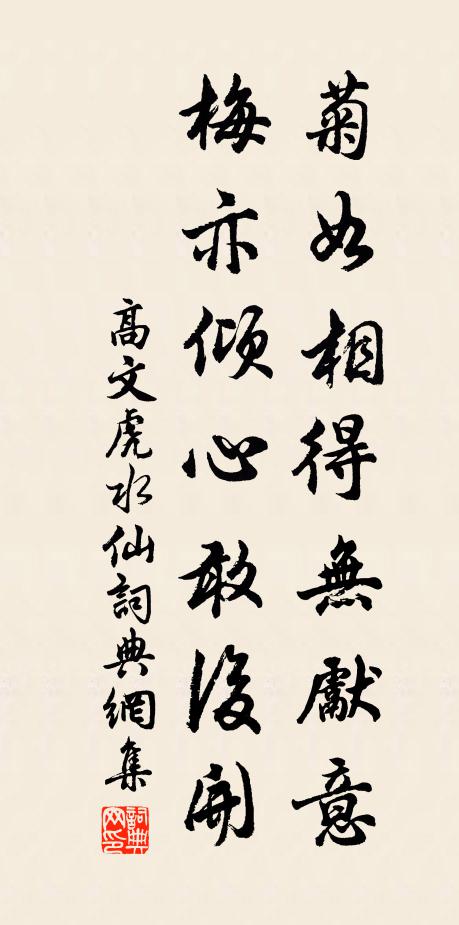 菊如相得無獻意
梅亦傾心敢後開
高文虎水仙詞典網集
詞典網印